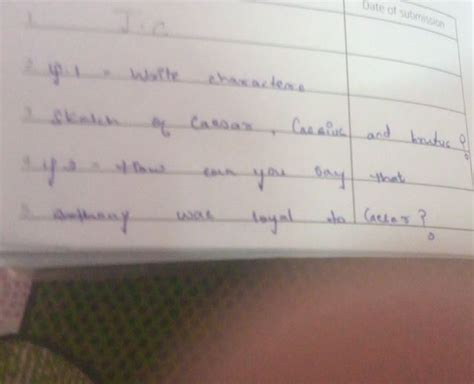 Date of submission
1 J.C
2 q.1 = Write characters
3 Sketch of Caesar, Cassius and brutus?
4 q 2 = How can you say that
5 Anthony was loyal to Caesar?